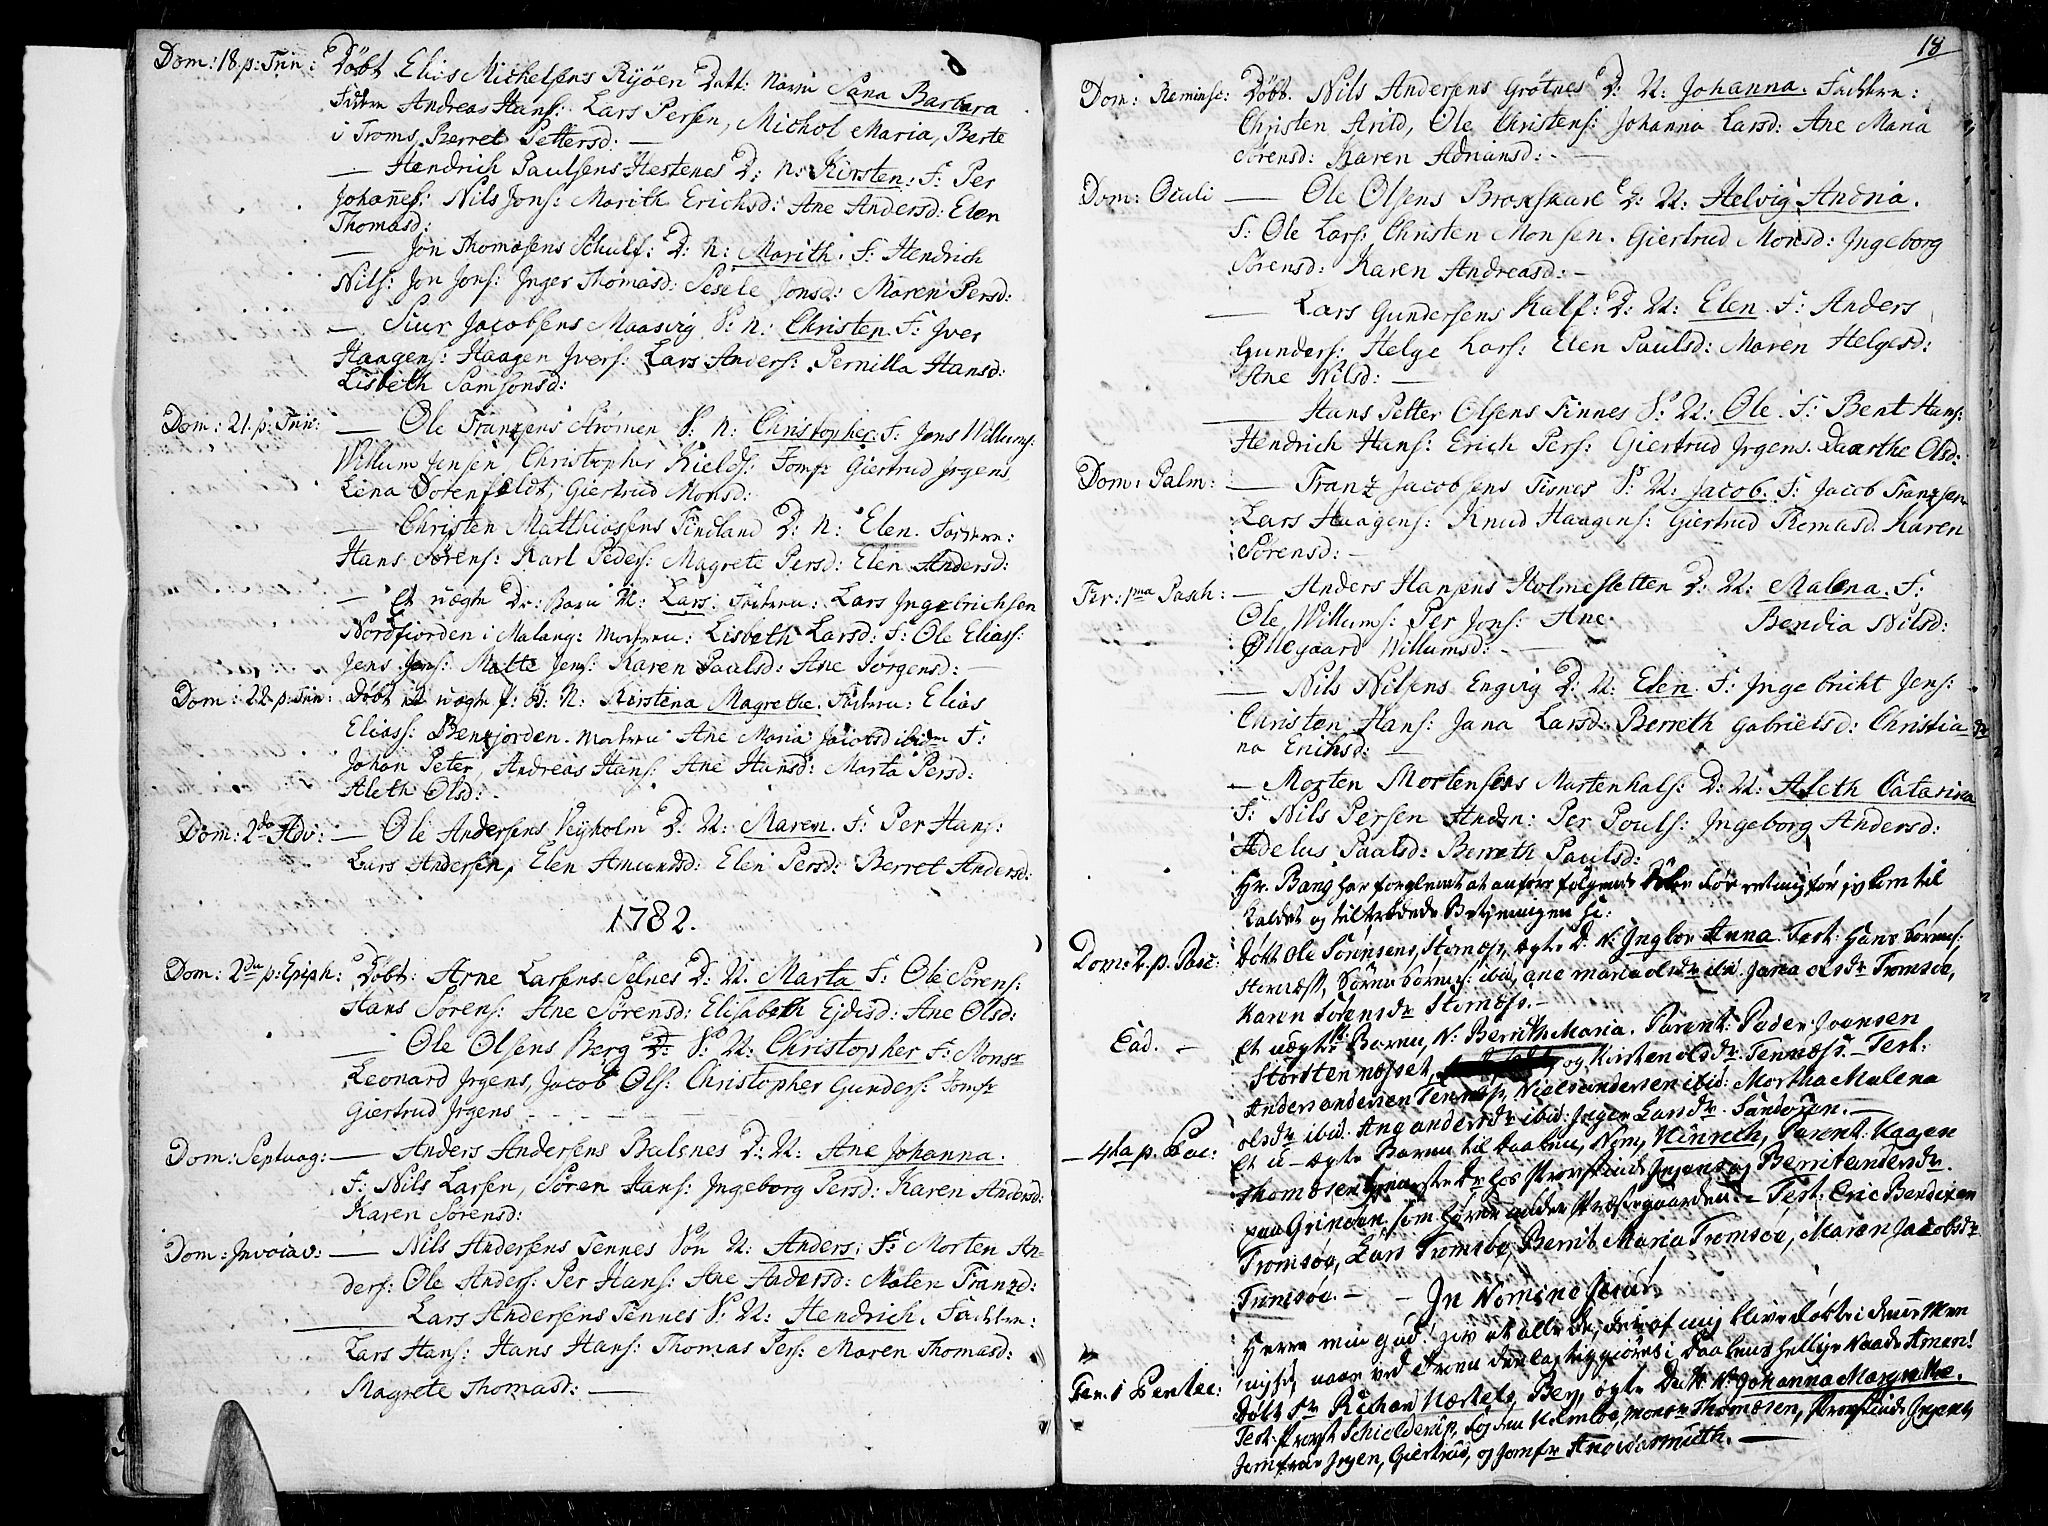 Dom: 18. p: Trin: Döbt Elias Michelsens Ryöen Datt: Navn Sana Barbara
Faddere Andreas Hans: Lars Persen, Michel Maria, Berte
i Troms, Berret Pettersd: —
— Hendrich Paulsens Hestenes D: N: Kirsten: F: Per
Johannes: Nils Jons: Marith Erichsd: Ane Andersd: Elen
Thomasd:
— Jon Thomasens Schulf: D: N: Marith: F: Hendrich
Nils: Jon Jons: Inger Thomasd: Sesele Jonsd: Maren Persd:
— Siur Jacobsens Maasvig S: N: Christen. F: Iver
Haagens: Haagen Ivers: Lars Anders: Pernilla Hansd:
Lisbeth Samsonsd:
Dom: 21. p: Trin: — Ole Franzsens Strömen S: N: Christopher: F: Jens Willums:
Willum Jensen, Christopher Kields: Jomfr Giertrud Jrgens,
Lena Dotenfeldt, Giertrud Monsd:
— Christen Matthiasens Findland D: N: Elen. Faddere:
Hans Sörens: Karl Peders: Magrete Persd: Elen Andersd:
— Et uægte Dr: Barn N: Lars: Fadren: Lars Ingebrichsen
Nordfiorden i Malang: Modren: Lisbeth Larsd: F: Ole Elias:
Jens Jons: Matte Jens: Karen Paulsd: Ane Jörgensd: —
Dom: 22. p: Trin: Döbt et uægte N: Kirstena Magrethe. Fadren: Elias
Elias: Benjorden. Modren Ane Maria Jacobsd ibidem F:
Johan Peter, Andreas Hans: Ane Hansd: Marta Persd:
Aleth Olsd:
Dom: 2da Adv: — Ole Andersens Vejholm D: N: Maren. F: Per Hans:
Lars Andersen, Elen Amundsd: Elen Persd: Berret Andersd:
1782.
Dom: 2da p: Epiph: Döbt: Arne Larsens Selnes D: N. Marta F: Ole Sörens:
Hans Sörens: Ane Sörensd: Elisabeth Ejdisd: Ane Olsd:
— Ole Olsens Berg D: S: N: Christopher F: Monsr
Leonard Jrgens, Jacob Ols: Christopher Gunders: Jomfr
Giertrud Jrgens
Dom: Septuag: — Anders Andersens Balsnes D: N: Ane Johanna.
F: Nils Larsen, Sören Hans: Ingeborg Persd: Karen Andersd:
Karen Sörensd:
Dom: Invocav: — Nils Andersens Tennes Sön N: Anders: F: Morten An-
ders: Ole Anders: Per Hans: Ane Andersd: Malen Franzd:
— Lars Andersens Tennes S: N: Hendrich. Faddere:
Lars Hans: Hans Hans: Thomas Pers: Maren Thomasd:
Magrete Thomasd: —
18
Dom: Reminsc: Döbt. Nils Andersens Grötnes D: N: Johanna. Faddere:
Christen Aritd, Ole Christens: Johanna Larsd: Ane Maria
Sörensd: Karen Adriansd: —
Dom: Oculi — Ole Olsens Broxskare D: N: Helvig Andria.
F: Ole Lars: Christen Monsen. Giertrud Monsd: Ingeborg
Sörensd: Karen Andreasd: —
— Lars Gundersens Kalf: D: N: Elen. F: Anders
Gunders: Helge Lars: Elen Paulsd: Maren Helgesd:
Ane Nilsd: —
— Hans Petter Olsens Finnes S: N: Ole. F: Bent Hans:
Hendrich Hans: Erich Pers: Giertrud Jrgens. Daarthe Olsd:
Dom: Palm: — Franz Jacobsens Tisnes S: N: Jacob. F: Jacob Franzsen
Lars Haagens: Knud Haagens: Giertrud Themasd: Karen
Sörensd: —
Fer: 1ma Pasch: — Anders Hansens Holmesletten D: N: Malena. F:
Ole Willums: Per Jons: Ane Bendia Nilsd:
Ollegaard Willumsd: —
— Nils Nilsens Engvig D: N: Elen. F: Ingebricht Jens:
Christen Hans: Jana Larsd: Berreth Gabrielsd: Christia-
na Erichsd: —
— Morten Mortensens Martenhals: D: N: Aleth Catarina
F: Nils Persen Anden: Per Pouls: Ingeborg Andersd:
Adelus Paalsd: Berreth Paulsd:
Hr. Bang har forglemt at anföre fölgende Döbte för jeg kom til
Kaldet og tiltrædede Betjeningen
Dom: 2. p. Pasc: Döbt Ole Sörensens, Sternæs, ægte D. N: Ingbor Anna. Test: Hans Sörens:
Sternæss, Sörne Sörens: ibid, ane maria olsdr ibid. Jana olsdr Tromsöe,
Karen Sörensdr Sternæss. —
Ead. — Et uægte Barn, N: Berrith Maria. Parent: Peder Joensen
Storstennæsset, og Kirsten olsdr. Tennæss. — Test:
Anders andersen Tennæs, Niels andersen ibid: Mortha Malena
olsdr ibid. Ane andersdr ibid: Inger Larsdr. Sandöien. —
— 4ta p. Pasc: Et u-ægte Barn til Daaben, Nom, Hinrich, Parent: Haagen
Thomæsen hos Provstinde Jrgens og Berrit andersdr.
paa Grinden, som hörer under Præstegaarden. — Test: Eric Bendixen
Tromsöe, Lars Tromsöe, Berrit Maria Tromsöe, Maren Jacobsdr
Tromsöe. — — In Nomine Jesu!
Herre min Gud! giv at alle de, der af mig blive döbte i denne Me-
nighed, naae ved Troen deelagtiggiöres i Daabens hellige Naade Amen!
Fer: 1 Pentec: Döbt Sr Richart Hærtels, Bey, ægte Dattr. N: Johanna Margrethe.
Test. Provst Schielderup, monsr Thomæsen, Provstinde Jrgens,
Jomfrue Jrgen, Giertrud, og Jomfr